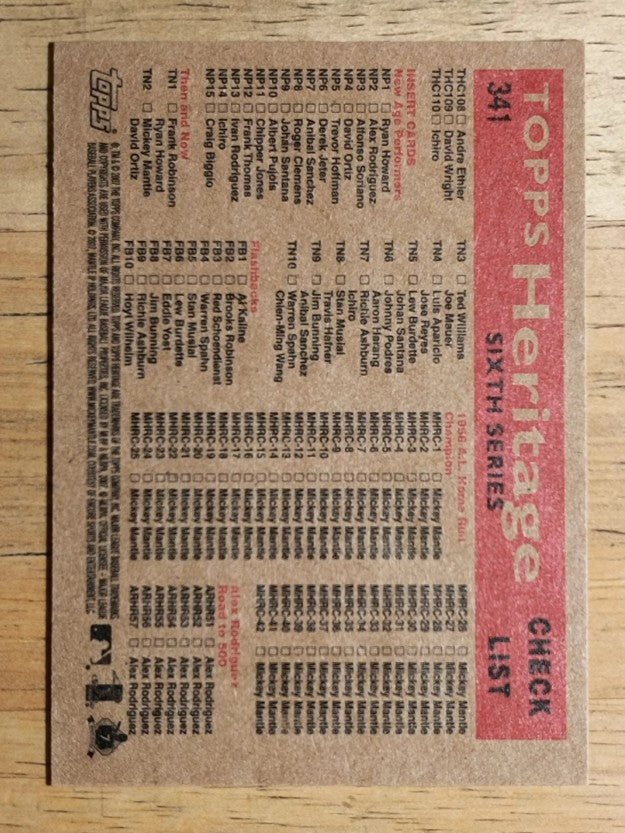 TOPPS Heritage CHECK
341 SIXTH SERIES LIST
THC108 Andre Ethier
THC109 David Wright
THC110 Ichiro
INSERT CARDS
New Age Performers
NP1 Ryan Howard
NP2 Alex Rodriguez
NP3 Alfonso Soriano
NP4 David Ortiz
NP5 Trevor Hoffman
NP6 Derek Jeter
NP7 Anibal Sanchez
NP8 Roger Clemens
NP9 Johan Santana
NP10 Albert Pujols
NP11 Chipper Jones
NP12 Frank Thomas
NP13 Ivan Rodriguez
NP14 Ichiro
NP15 Craig Biggio
Then and Now
TN1 Frank Robinson
Ryan Howard
TN2 Mickey Mantle
David Ortiz
TN3 Ted Williams
Joe Mauer
TN4 Luis Aparicio
Jose Reyes
TN5 Lew Burdette
Johan Santana
TN6 Johnny Podres
Aaron Harang
TN7 Richie Ashburn
Ichiro
TN8 Stan Musial
Travis Hafner
TN9 Jim Bunning
Anibal Sanchez
TN10 Warren Spahn
Chien-Ming Wang
Flashbacks
FB1 Al Kaline
FB2 Brooks Robinson
FB3 Red Schoendienst
FB4 Warren Spahn
FB5 Stan Musial
FB6 Lew Burdette
FB7 Eddie Yost
FB8 Jim Bunning
FB9 Richie Ashburn
FB10 Hoyt Wilhelm
A.L. Home Run
Champion
MHRC-1 Mickey Mantle
MHRC-2 Mickey Mantle
MHRC-3 Mickey Mantle
MHRC-4 Mickey Mantle
MHRC-5 Mickey Mantle
MHRC-6 Mickey Mantle
MHRC-7 Mickey Mantle
MHRC-8 Mickey Mantle
MHRC-9 Mickey Mantle
MHRC-10 Mickey Mantle
MHRC-11 Mickey Mantle
MHRC-12 Mickey Mantle
MHRC-13 Mickey Mantle
MHRC-14 Mickey Mantle
MHRC-15 Mickey Mantle
MHRC-16 Mickey Mantle
MHRC-17 Mickey Mantle
MHRC-18 Mickey Mantle
MHRC-19 Mickey Mantle
MHRC-20 Mickey Mantle
MHRC-21 Mickey Mantle
MHRC-22 Mickey Mantle
MHRC-23 Mickey Mantle
MHRC-24 Mickey Mantle
MHRC-25 Mickey Mantle
MHRC-26 Mickey Mantle
MHRC-27 Mickey Mantle
MHRC-28 Mickey Mantle
MHRC-29 Mickey Mantle
MHRC-30 Mickey Mantle
MHRC-31 Mickey Mantle
MHRC-32 Mickey Mantle
MHRC-33 Mickey Mantle
MHRC-34 Mickey Mantle
MHRC-35 Mickey Mantle
MHRC-36 Mickey Mantle
MHRC-37 Mickey Mantle
MHRC-38 Mickey Mantle
MHRC-39 Mickey Mantle
MHRC-40 Mickey Mantle
MHRC-41 Mickey Mantle
MHRC-42 Mickey Mantle
Alex Rodriguez
Road to 500
ARHR51 Alex Rodriguez
ARHR52 Alex Rodriguez
ARHR53 Alex Rodriguez
ARHR54 Alex Rodriguez
ARHR55 Alex Rodriguez
ARHR56 Alex Rodriguez
ARHR57 Alex Rodriguez
Topps